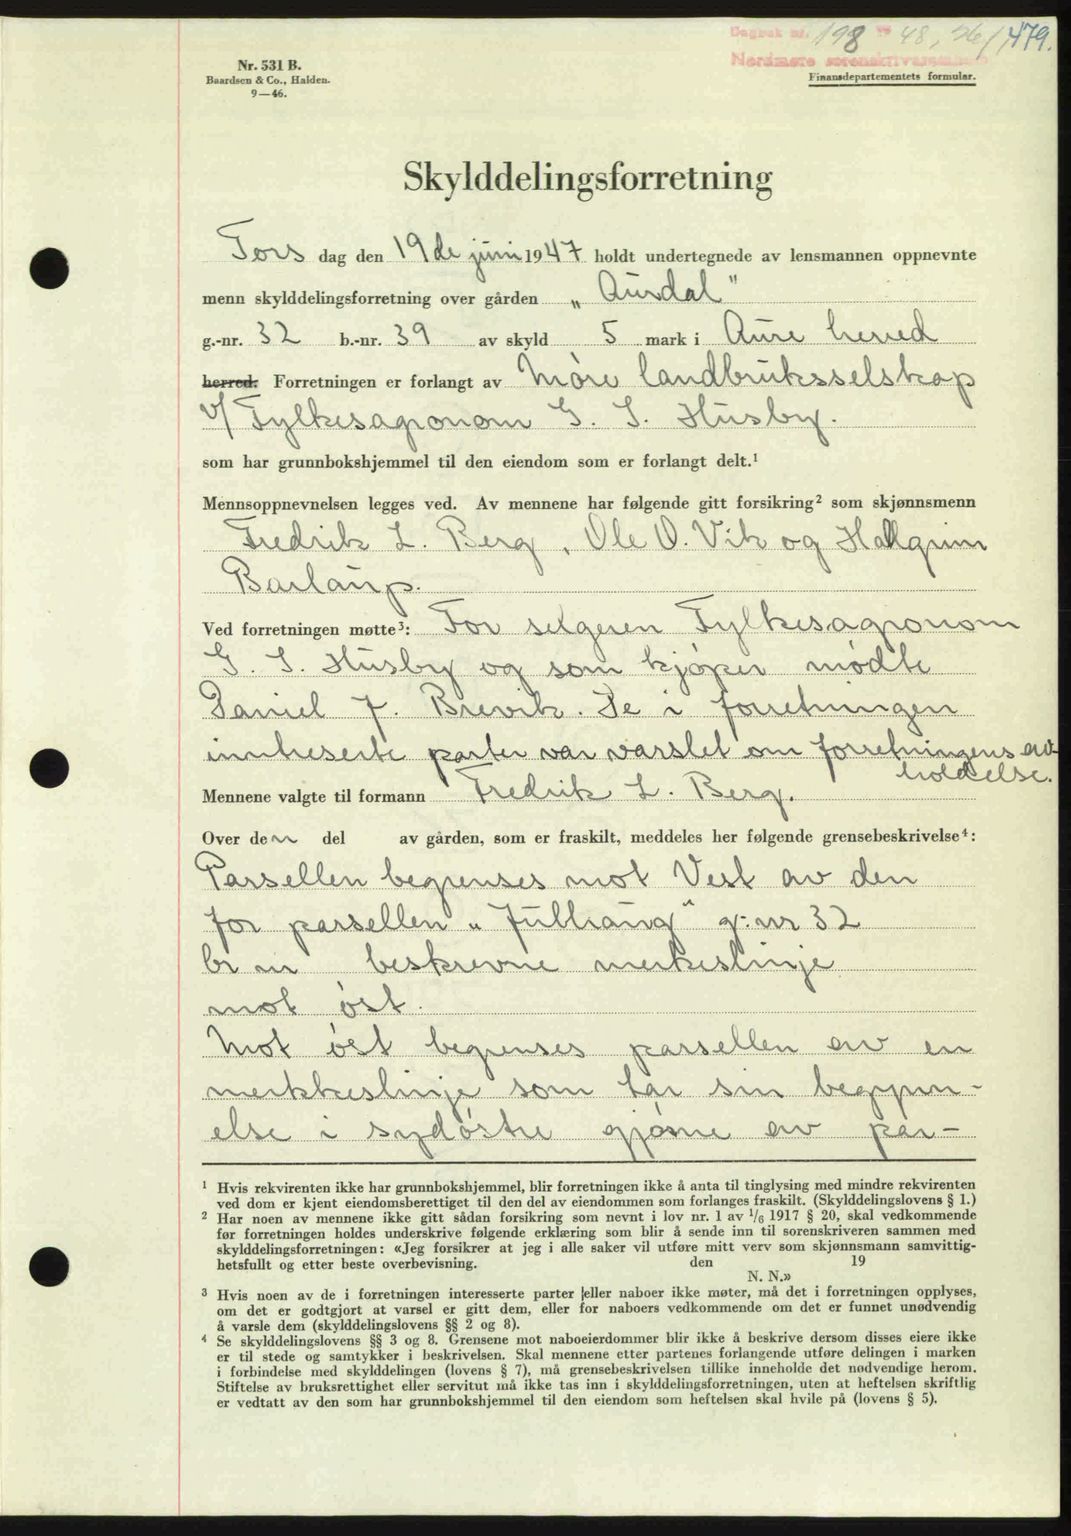 Dagbok nr. 198 19 48, 26/1, 479.
Nordmøre sorenskriverembete
Nr. 531 B.
Baardsen & Co., Halden.
9—46.
Finansdepartementets formular.
Skylddelingsforretning
Tors dag den 19de juni 1947 holdt undertegnede av lensmannen oppnevnte
menn skylddelingsforretning over gården „Aurdal"
g.-nr. 32 b.-nr. 39 av skyld 5 mark i Aure herred
herred. Forretningen er forlangt av Møre landbruksselskap
v/ Fylkesagronom G. S. Husby.
som har grunnbokshjemmel til den eiendom som er forlangt delt.¹
Mennsoppnevnelsen legges ved. Av mennene har følgende gitt forsikring² som skjønnsmenn
Fredrik L. Berg, Ole O. Vik og Hallgrim
Barlaup.
Ved forretningen møtte³: For selgeren Fylkesagronom
G. S. Husby og som kjøper mødte
Daniel J. Brevik. De i forretningen
inntreserte parter var varslet om forretningens av-
holdelse.
Mennene valgte til formann Fredrik L. Berg.
Over den del av gården, som er fraskilt, meddeles her følgende grensebeskrivelse⁴:
Parsellen begrenses mot Vest av den
for parsellen „Julhaug" g.nr 32
br nr beskrevne merkeslinje
mot øst.
Mot øst begrenses parsellen av en
merkkeslinje som tar sin begynn-
else i sydøstre gjøsne av par-
¹ Hvis rekvirenten ikke har grunnbokshjemmel, blir forretningen ikke å anta til tinglysing med mindre rekvirenten
ved dom er kjent eiendomsberettiget til den del av eiendommen som forlanges fraskilt. (Skylddelingslovens § 1.)
² Har noen av mennene ikke gitt sådan forsikring som nevnt i lov nr. 1 av 1/6 1917 § 20, skal vedkommende
før forretningen holdes underskrive følgende erklæring som blir å sende inn til sorenskriveren sammen med
skylddelingsforretningen: «Jeg forsikrer at jeg i alle saker vil utføre mitt verv som skjønnsmann samvittig-
hetsfullt og etter beste overbevisning. den 19
N. N.»
³ Hvis noen av de i forretningen interesserte parter eller naboer ikke møter, må det i forretningen opplyses,
om det er godtgjort at varsel er gitt dem, eller for naboers vedkommende om det er funnet unødvendig
å varsle dem (skylddelingslovens §§ 2 og 8).
⁴ Se skylddelingslovens §§ 3 og 8. Grensene mot naboeierdommer blir ikke å beskrive dersom disses eiere ikke
er til stede og samtykker i beskrivelsen. Skal mennene etter partenes forlangende utføre delingen i marken
i forbindelse med skylddelingen (lovens § 7), må grensebeskrivelsen tillike inneholde det nødvendige herom.
Stiftelse av bruksrettighet eller servitut må ikke tas inn i skylddelingsforretningen, uten at heftelsen skriftlig
er vedtatt av den som har grunnbokshjemmel til den eiendom som heftelsen skal hvile på (lovens § 5).